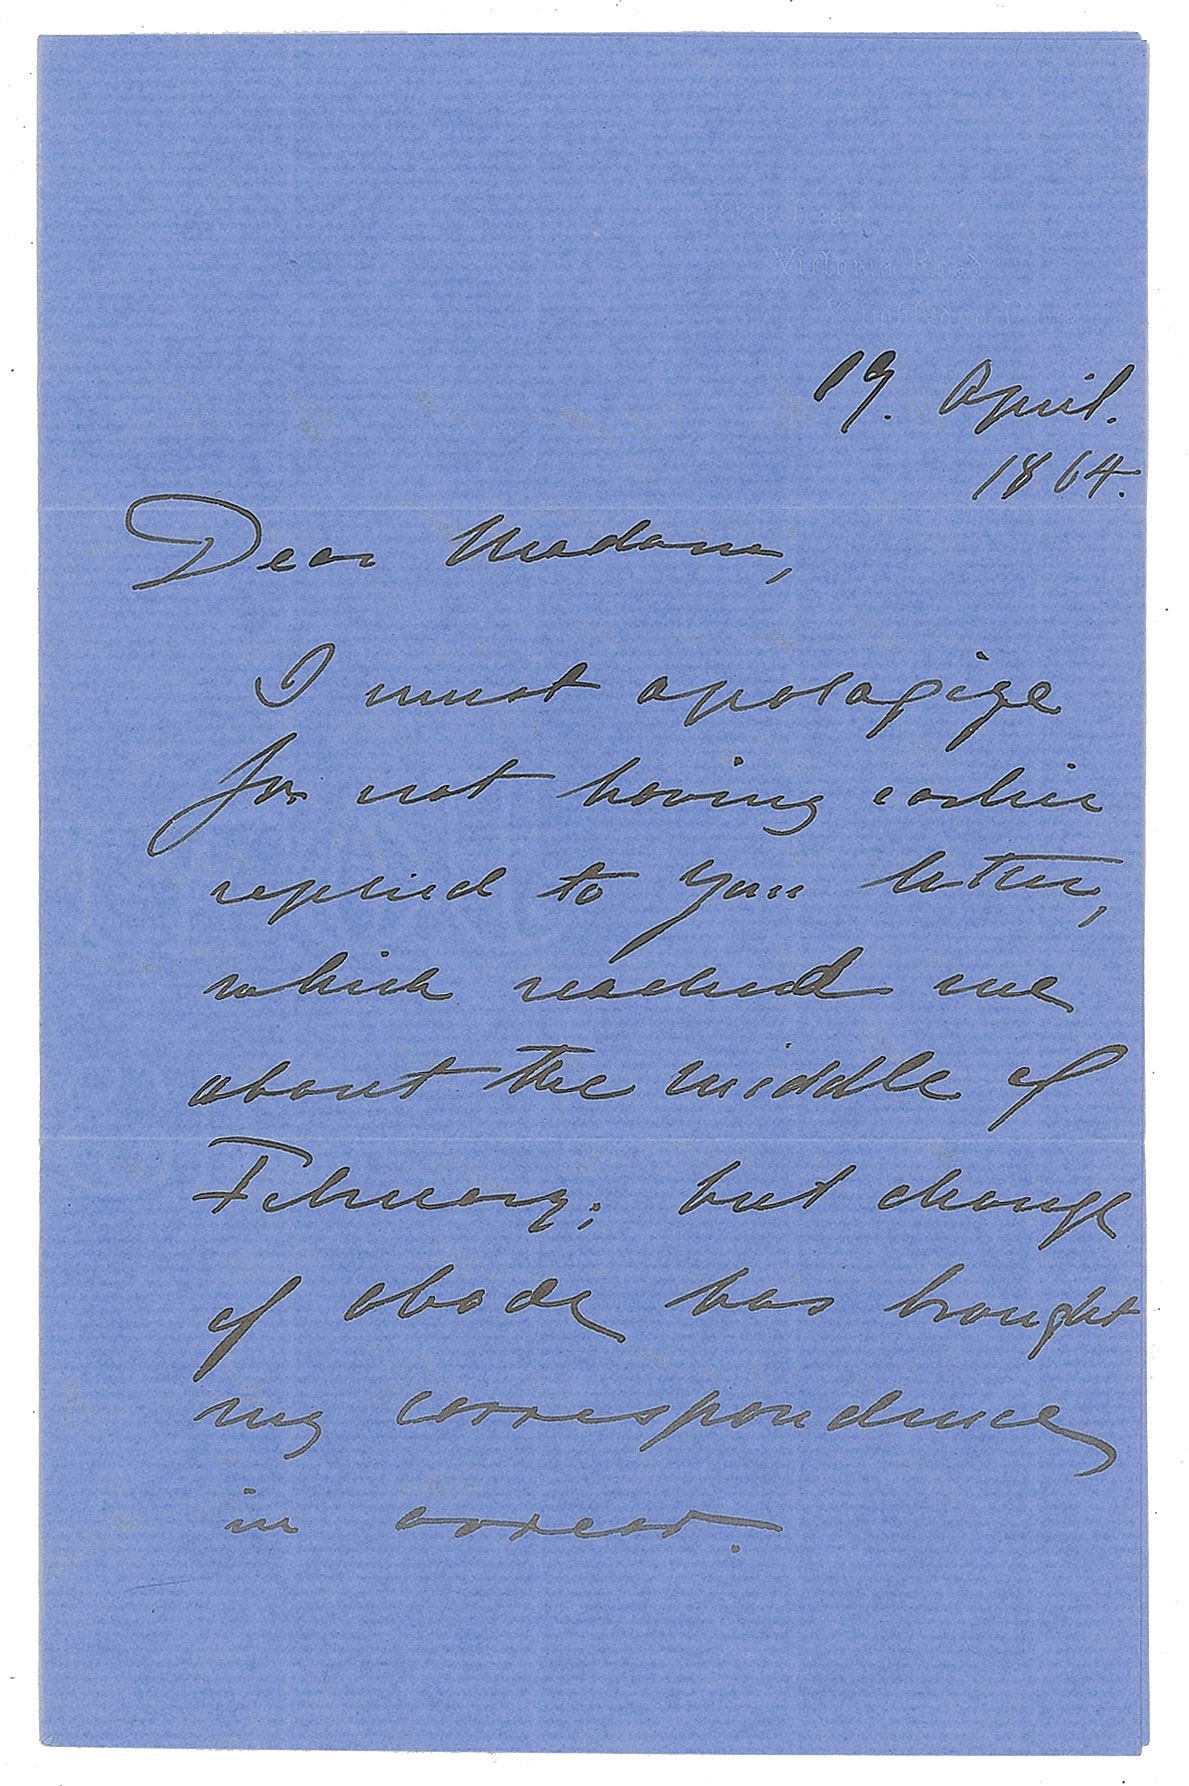 Oak Lea
Victoria Road
Wimbledon Park
19. April.
1864.
Dear Madam,
I must apologize
for not having earlier
replied to your letter,
which reached me
about the middle of
February; but change
of abode has brought
my correspondence
in arrear.